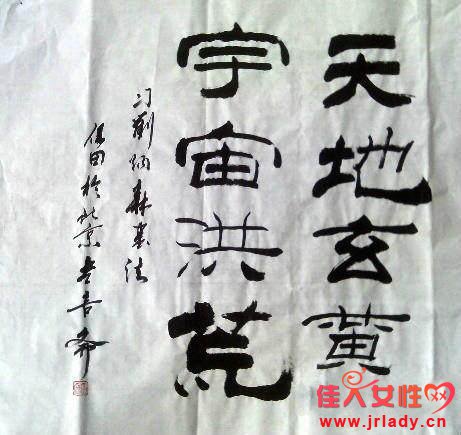 天地玄黄
宇宙洪荒
习刘炳森书法
保田於北京
佳人女性
www.jrlady.cn